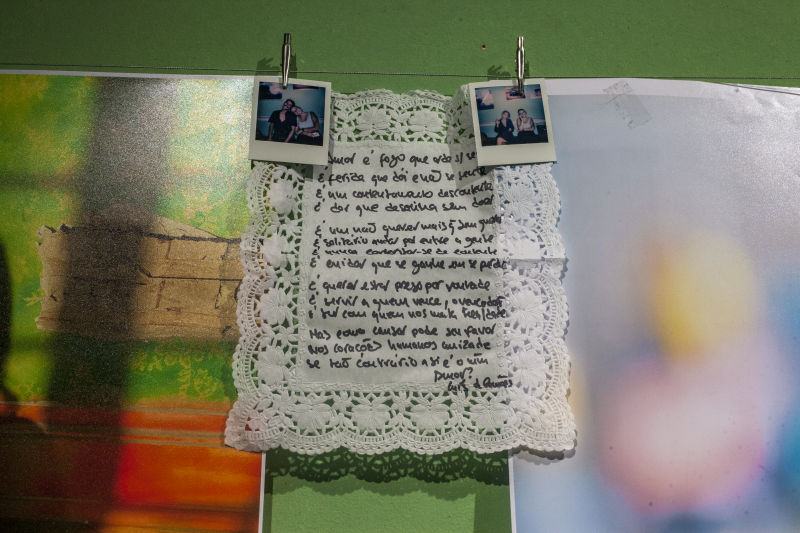 Amor é fogo que arde s/ se
é ferida que dói e não se sente
É um contentamento descontente
É dor que desatina sem doer
É um não querer mais q bem querer
É solitário andar por entre a gente
É nunca contentar-se de contente
É cuidar que se ganha em se perder
É querer estar preso por vontade
É servir a quem vence, o vencedor
É ter com quem nos mata lealdade
Mas como causar pode seu favor
Nos corações humanos amizade
Se tão contrário a si é o mm
Amor?
Luís d Camões